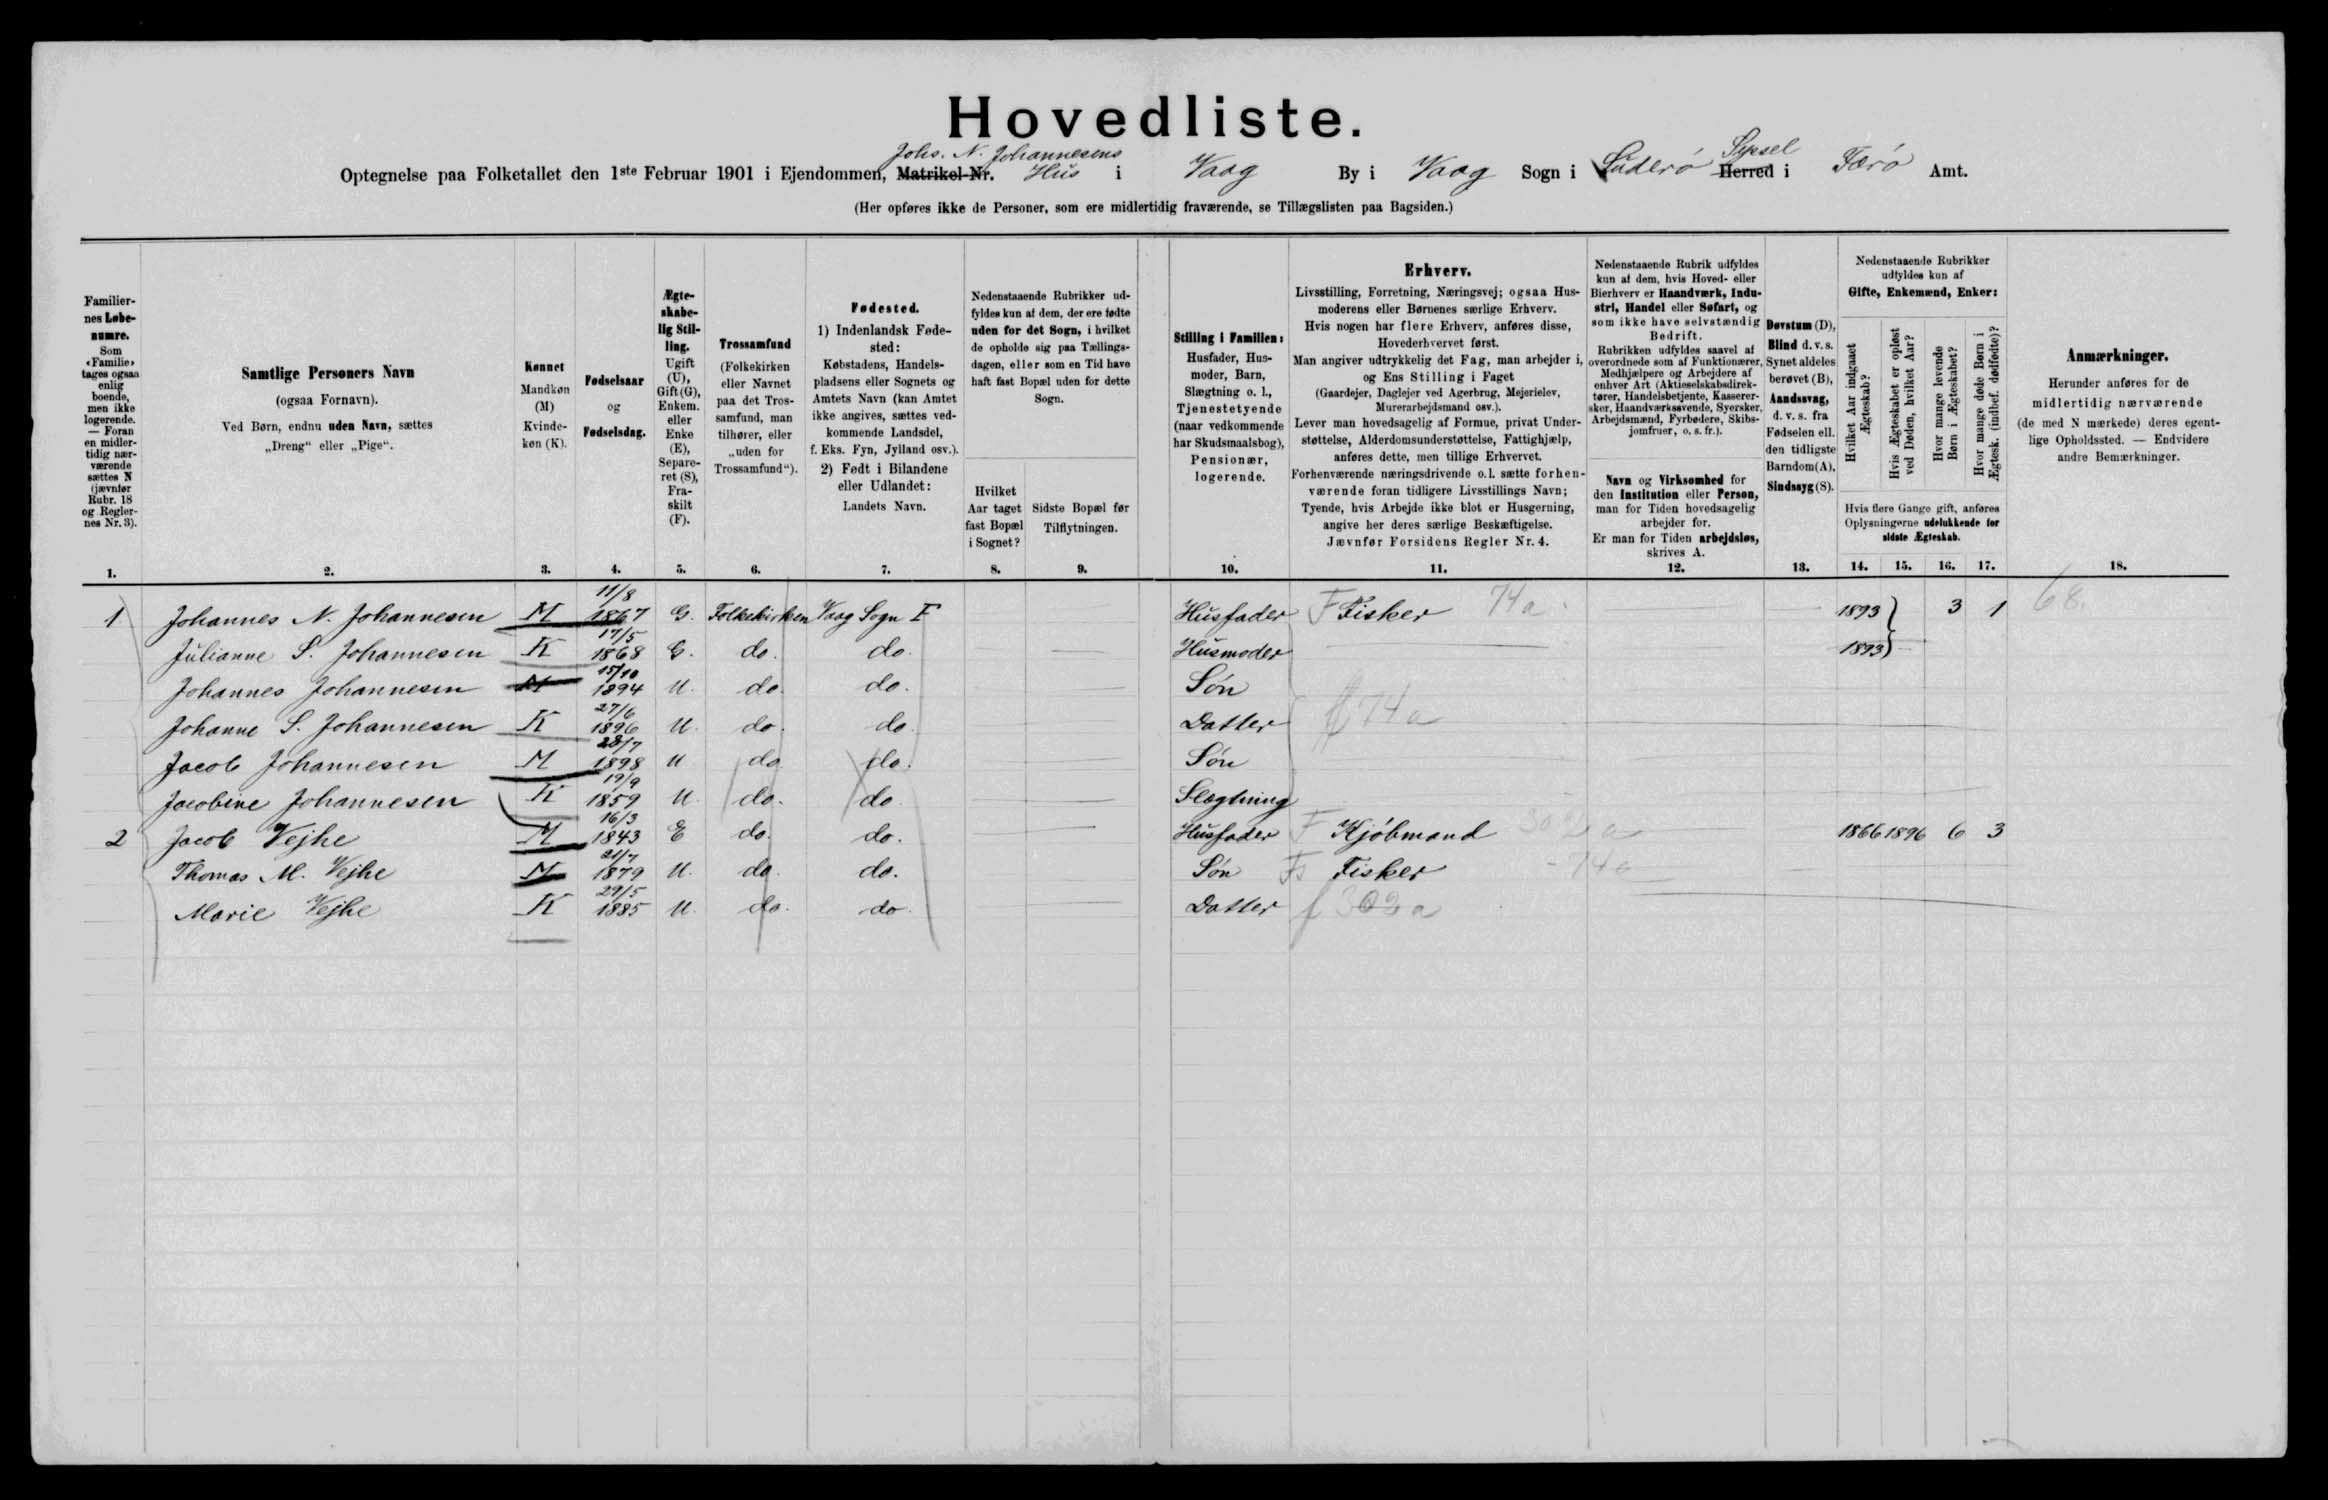 Hovedliste.
Johs. N. Johannesens
Sysel
Optegnelse paa Folketallet den 1ste Februar 1901 i Ejendommen, Matrikel-Nr. Hus i Vaag By i Vaag Sogn i Suderø Herred i Færø Amt.
(Her opføres ikke de Personer, som ere midlertidig fraværende, se Tillægslisten paa Bagsiden.)
Familier-
nes Løbe-
numre.
Som
«Familie»
tages ogsaa
enlig
boende,
men ikke
logerende.
— Foran
en midler-
tidig nær-
værende
sættes N
(jævnfør
Rubr. 18
og Regler-
nes Nr. 3).
1.
Samtlige Personers Navn
(ogsaa Fornavn).
Ved Børn, endnu uden Navn, sættes
„Dreng“ eller „Pige“.
2.
Kønnet
Mandkøn
(M)
Kvinde-
køn (K).
3.
Fødselsaar
og
Fødselsdag.
4.
Ægte-
skabe-
lig Stil-
ling.
Ugift
(U),
Gift (G),
Enkem.
eller
Enke
(E),
Separe-
ret (S),
Fra-
skilt
(F).
5.
Trossamfund
(Folkekirken
eller Navnet
paa det Tros-
samfund, man
tilhører, eller
„uden for
Trossamfund“).
6.
Fødested.
1) Indenlandsk Føde-
sted:
Købstadens, Handels-
pladsens eller Sognets og
Amtets Navn (kan Amtet
ikke angives, sættes ved-
kommende Landsdel,
f. Eks. Fyn, Jylland osv.).
2) Født i Bilandene
eller Udlandet:
Landets Navn.
7.
Nedenstaaende Rubrikker ud-
fyldes kun af dem, der ere fødte
uden for det Sogn, i hvilket
de opholde sig paa Tællings-
dagen, eller som en Tid have
haft fast Bopæl uden for dette
Sogn.
Hvilket
Aar taget
fast Bopæl
i Sognet?
8.
Sidste Bopæl før
Tilflytningen.
9.
Stilling i Familien:
Husfader, Hus-
moder, Barn,
Slægtning o. l.,
Tjenestetyende
(naar vedkommende
har Skudsmaalsbog),
Pensionær,
logerende.
10.
Erhverv.
Livsstilling, Forretning, Næringsvej; ogsaa Hus-
moderens eller Børnenes særlige Erhverv.
Hvis nogen har flere Erhverv, anføres disse,
Hovederhvervet først.
Man angiver udtrykkelig det Fag, man arbejder i,
og Ens Stilling i Faget
(Gaardejer, Daglejer ved Agerbrug, Mejerielev,
Murerarbejdsmand osv.).
Lever man hovedsagelig af Formue, privat Under-
støttelse, Alderdomsunderstøttelse, Fattighjælp,
anføres dette, men tillige Erhvervet.
Forhenværende næringsdrivende o. l. sætte forhen-
værende foran tidligere Livsstillings Navn;
Tyende, hvis Arbejde ikke blot er Husgerning,
angive her deres særlige Beskæftigelse.
Jævnfør Forsidens Regler Nr. 4.
11.
Nedenstaaende Rubrik udfyldes
kun af dem, hvis Hoved- eller
Bierhverv er Haandværk, Indu-
stri, Handel eller Søfart, og
som ikke have selvstændig
Bedrift.
Rubrikken udfyldes saavel af
overordnede som af Funktionærer,
Medhjælpere og Arbejdere af
enhver Art (Aktieselskabsdirek-
tører, Handelsbetjente, Kasserer-
sker, Haandværkssvende, Syersker,
Arbejdsmænd, Fyrbødere, Skibs-
jomfruer, o. s. fr.).
Navn og Virksomhed for
den Institution eller Person,
man for Tiden hovedsagelig
arbejder for.
Er man for Tiden arbejdsløs,
skrives A.
12.
Døvstum (D),
Blind d. v. s.
Synet aldeles
berøvet (B),
Aandssvag,
d. v. s. fra
Fødselen ell.
den tidligste
Barndom (A),
Sindssyg (S).
13.
Nedenstaaende Rubrikker
udfyldes kun af
Gifte, Enkemænd, Enker:
Hvilket Aar indgaaet
Ægteskab?
Hvis Ægteskabet er opløst
ved Døden, hvilket Aar?
Hvor mange levende
Børn i Ægteskabet?
Hvor mange døde Børn i
Ægtesk. (indbef. dødfødte)?
Hvis flere Gange gift, anføres
Oplysningerne udelukkende for
sidste Ægteskab.
14. 15. 16. 17.
Anmærkninger.
Herunder anføres for de
midlertidig nærværende
(de med N mærkede) deres egent-
lige Opholdssted. — Endvidere
andre Bemærkninger.
18.
11/8
1 Johannes N. Johannesen M 1867 G. Folkekirken Vaag Sogn F Husfader F Fisker 74a 1893 3 1 68.
17/5
Julianne S. Johannesen K 1868 G. do. do. Husmoder 1893
15/10
Johannes Johannesen M 1894 U. do. do. Søn
27/6
Johanne S. Johannesen K 1896 U. do. do. Datter 74a
28/7
Jacob Johannesen M 1898 U do do. Søn
19/9
Jacobine Johannesen K 1859 U. do. do. Slægtning
16/3
2 Jacob Vejhe M 1843 E do. do. Husfader F Kjøbmand 302a 1866 1896 6 3
21/7
Thomas M. Vejhe M 1879 U. do. do. Søn Fs Fisker - 74a
29/5
Marie Vejhe K 1885 U. do. do. Datter f 302a